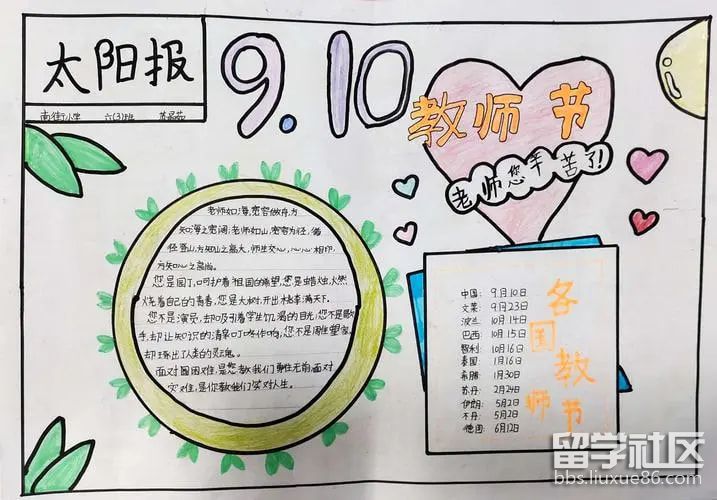 太阳报
南街小学 六(3)班
9.10
教师节
老师您辛苦了!
老师如海,宽容做舟,方
知海之宽阔;老师如山,宽容为径,循
径登山,方知山之高大,师生交心,心心相印,
方知心之高尚。
您是园丁,呵护着祖国的希望,您是蜡烛,火燃
烧着自己的青春,您是大树,开出桃李满天下。
您不是演员,却吸引着学生饥渴的目光,您不是歌
手,却让知识的清泉叮咚作响,您不是雕塑家,
却塑出了人类的灵魂。
面对困难,是您教我们勇往无前,面对
灾难,是你教我们笑对人生。
各国教师节
中国: 9月10日
文莱: 9月23日
波兰: 10月14日
巴西: 10月15日
智利: 10月16日
泰国: 1月16日
希腊: 1月30日
苏丹: 2月24日
伊朗: 5月2日
不丹: 5月2日
德国: 6月12日
留学社区
bbs.liuxue86.com